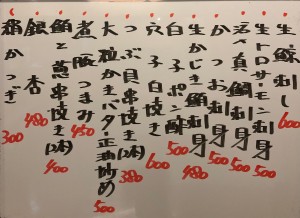 生鯨刺し 600
生トロサーモン刺身 500
活〆真鯛刺身 500
かつお刺身 500
生かじき鮪刺身 480
白子ポン酢 500
穴子焼き 600
つぶ貝串焼き(2本) 380
大粒かきバター正油炒め 500
煮豚つまみ 450
鮪と葱串焼き(2本) 400
銀杏 480
絹かつぎ 300